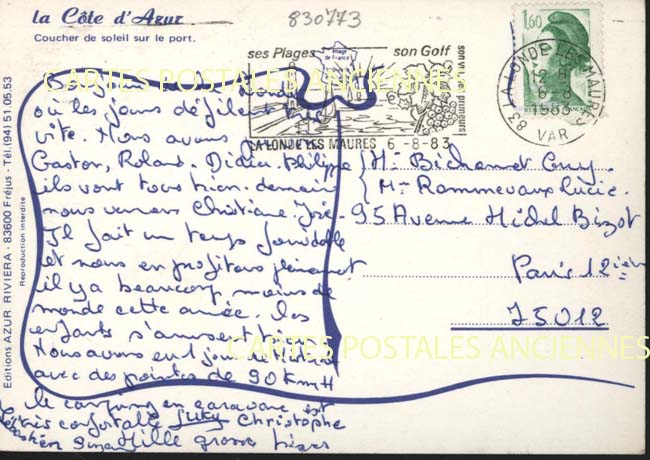 la Côte d'Azur
Coucher de soleil sur le port.
830773
ses Plages
Image de France
son Golf
son vin, ses primeurs
LA LONDE LES MAURES 6-8-83
1,60
83 LA LONDE LES MAURES
6-8
1983
VAR
où les jours défilent
vite. Nous avons
Gaston, Roland. Didier. Philippe
ils vont tous bien. demain
nous verrons Christiane. José.
Il fait un temps formidable
et nous en profitons pleinement
il y a beaucoup moins de
monde cette année. les
enfants s'amusent
Nous avons eu 1 jour de
avec des pointes de 90 Km H
le camping en caravane est
très confortable Lucy Christophe
Mille grosses bises
Mr Béchamet Guy
Me Rommevaux Lucie.
95 Avenue Michel Bizot
Paris 12ième
75012
Editions AZUR RIVIERA - 83600 Fréjus - Tél. (94) 51.05.53
Reproduction interdite
CARTES POSTALES ANCIENNES
CARTES POSTALES ANCIENNES